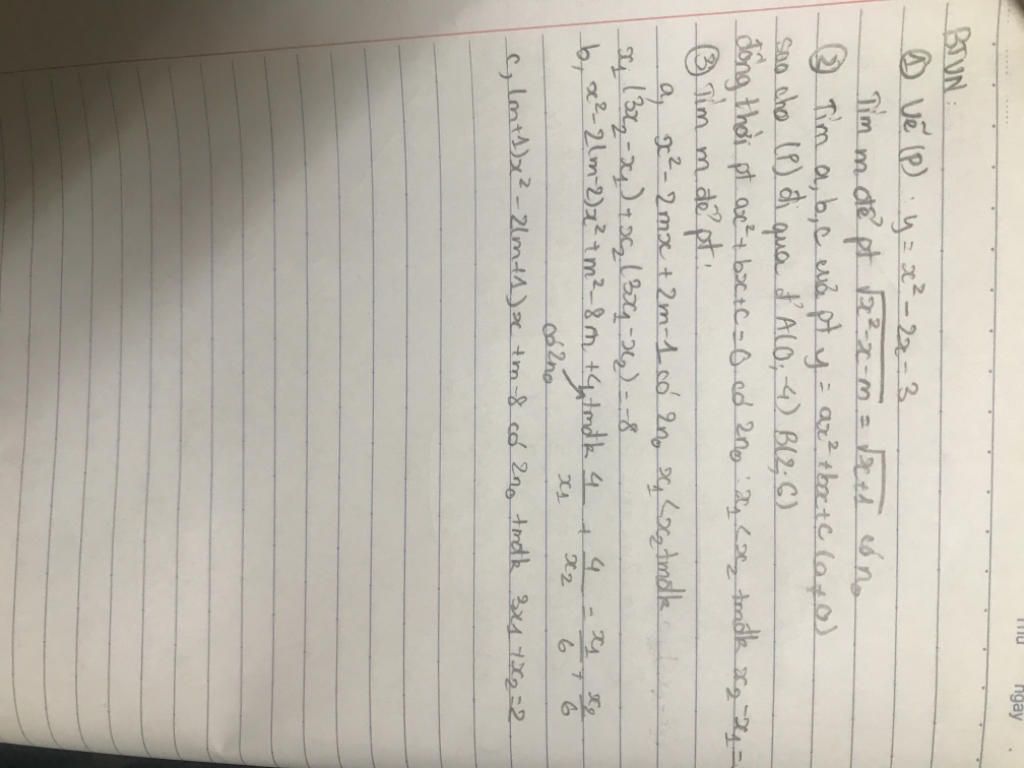 BTVN:
① Vẽ (P): y = x² - 2x - 3
Tìm m để pt √x²-x-m = √x+1 có n₀
② Tìm a, b, c của pt y = ax² + bx + c (a ≠ 0)
sao cho (P) đi qua đ' A(0;-4) B(2;6)
đồng thời pt ax² + bx + c = 0 có 2n₀: x₁ < x₂ tmđk x₂ - x₁ =
③ Tìm m để pt:
a, x² - 2mx + 2m - 1 có 2n₀ x₁ < x₂ tmđk
x₁(3x₂ - x₁) + x₂(3x₁ - x₂) = -8
b, x² - 2(m-2)x² + m² - 8m + 4 có 2n₀ tmđk 4/x₁ + 4/x₂ = x₁/6 + x₂/6
c, (m+1)x² - 2(m+1)x + m - 8 có 2n₀ tmđk 3x₁ + x₂ = 2
Thứ ngày